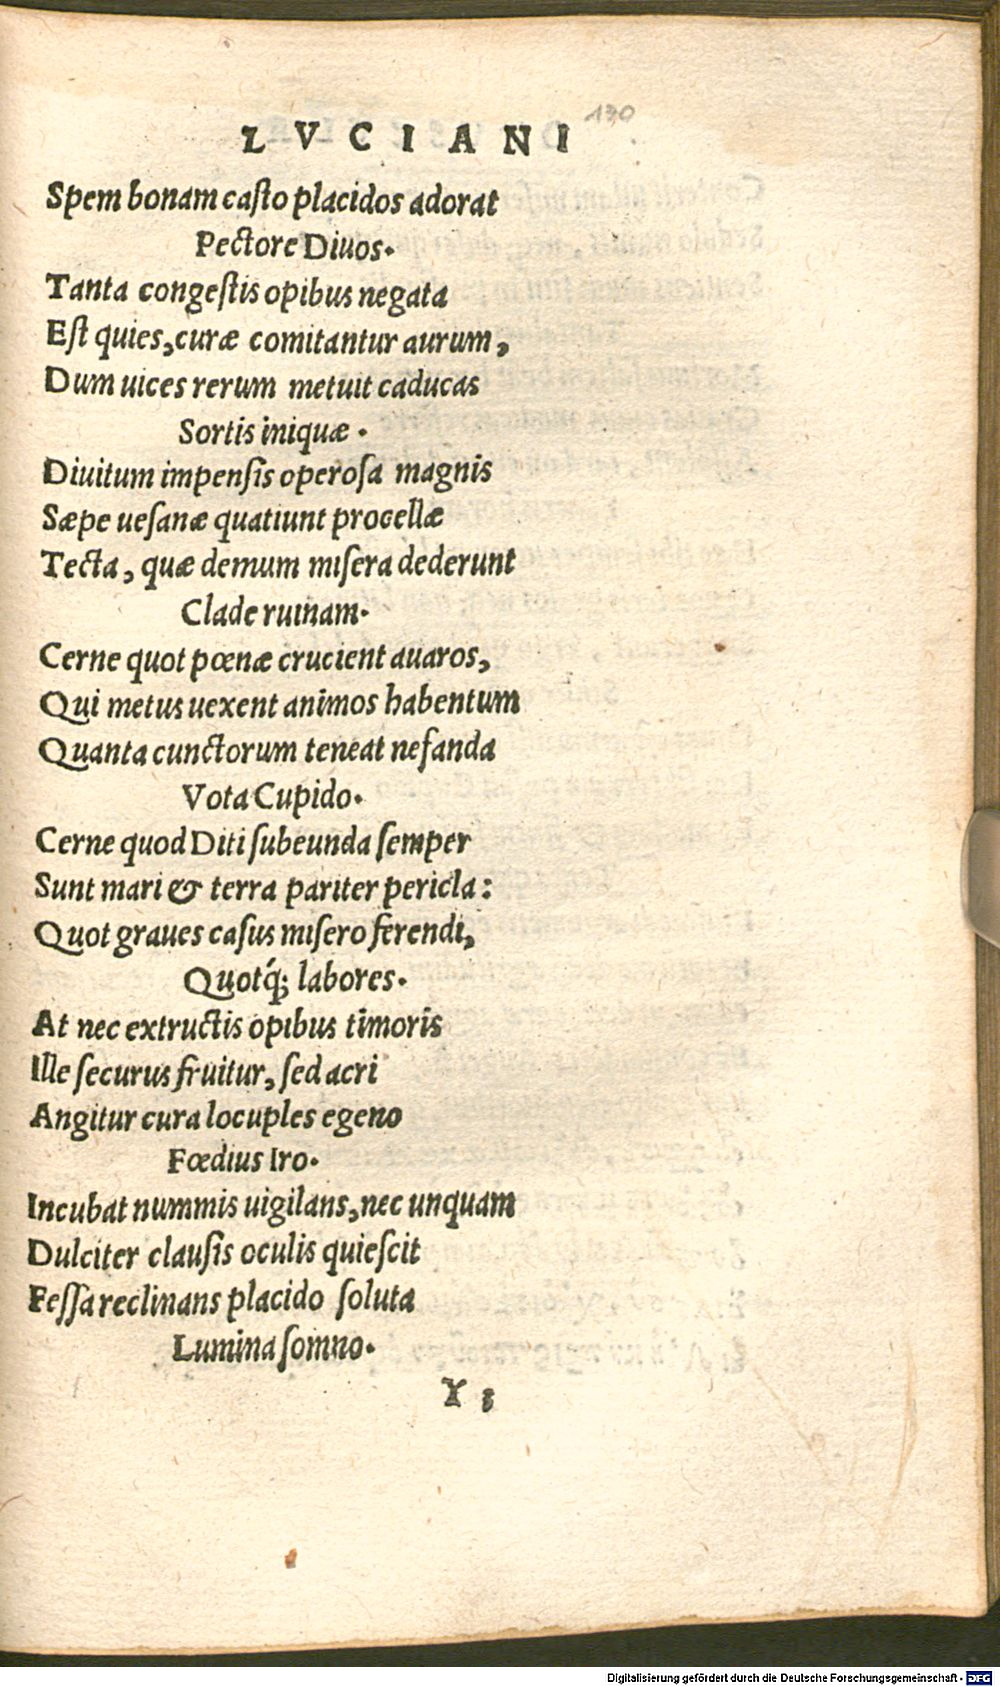 130
LVCIANI
Spem bonam casto placidos adorat
Pectore Diuos.
Tanta congestis opibus negata
Est quies, curæ comitantur aurum,
Dum uices rerum metuit caducas
Sortis iniquæ.
Diuitum impensis operosa magnis
Sæpe uesanæ quatiunt procellæ
Tecta, quæ demum misera dederunt
Clade ruinam.
Cerne quot pœnæ crucient auaros,
Qui metus uexent animos habentum
Quanta cunctorum teneat nefanda
Vota Cupido.
Cerne quod Diti subeunda semper
Sunt mari & terra pariter pericla:
Quot graues casus misero ferendi,
Quotq́; labores.
At nec extructis opibus timoris
Ille securus fruitur, sed acri
Angitur cura locuples egeno
Fœdius Iro.
Incubat nummis uigilans, nec unquam
Dulciter clausis oculis quiescit
Fessa reclinans placido soluta
Lumina somno.
Y 3
Digitalisierung gefördert durch die Deutsche Forschungsgemeinschaft - DFG